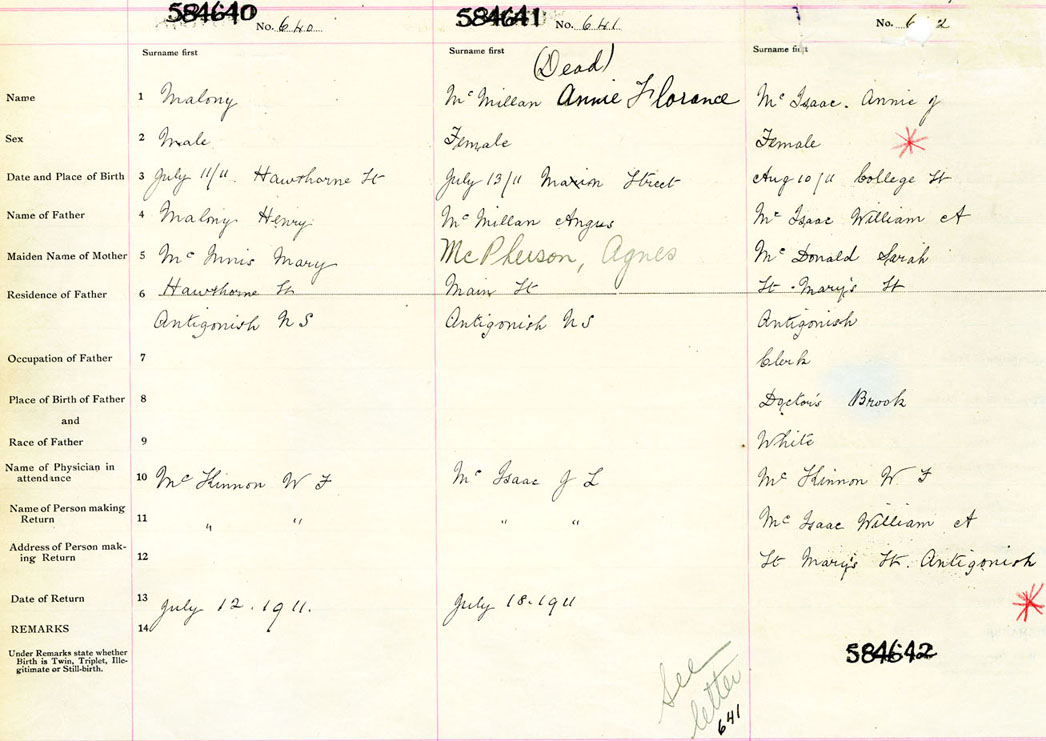 584640 No. 640 584641 No. 641 No. 6 2
Surname first Surname first Surname first
(Dead)
Name 1 Malony Mc Millan Annie Florance Mc Isaac. Annie J
Sex 2 Male Female Female
Date and Place of Birth 3 July 11/11. Hawthorne St July 13/11 Marion Street Aug 10/11 College St
Name of Father 4 Malony Henry Mc Millan Angus Mc Isaac William A
Maiden Name of Mother 5 Mc Innis Mary McPherson, Agnes Mc Donald Sarah
Residence of Father 6 Hawthorne St Main St St. Mary's St
Antigonish N S Antigonish N S Antigonish
Occupation of Father 7 Clerk
Place of Birth of Father 8 Doctor's Brook
and
Race of Father 9 White
Name of Physician in
attendance 10 Mc Kinnon W F Mc Isaac J L Mc Kinnon W. F
Name of Person making
Return 11 " " " " Mc Isaac William A
Address of Person mak-
ing Return 12 St Mary's St. Antigonish
Date of Return 13 July 12. 1911. July 18. 1911
REMARKS 14
584642
Under Remarks state whether
Birth is Twin, Triplet, Ille-
gitimate or Still-birth.
See
letter
641